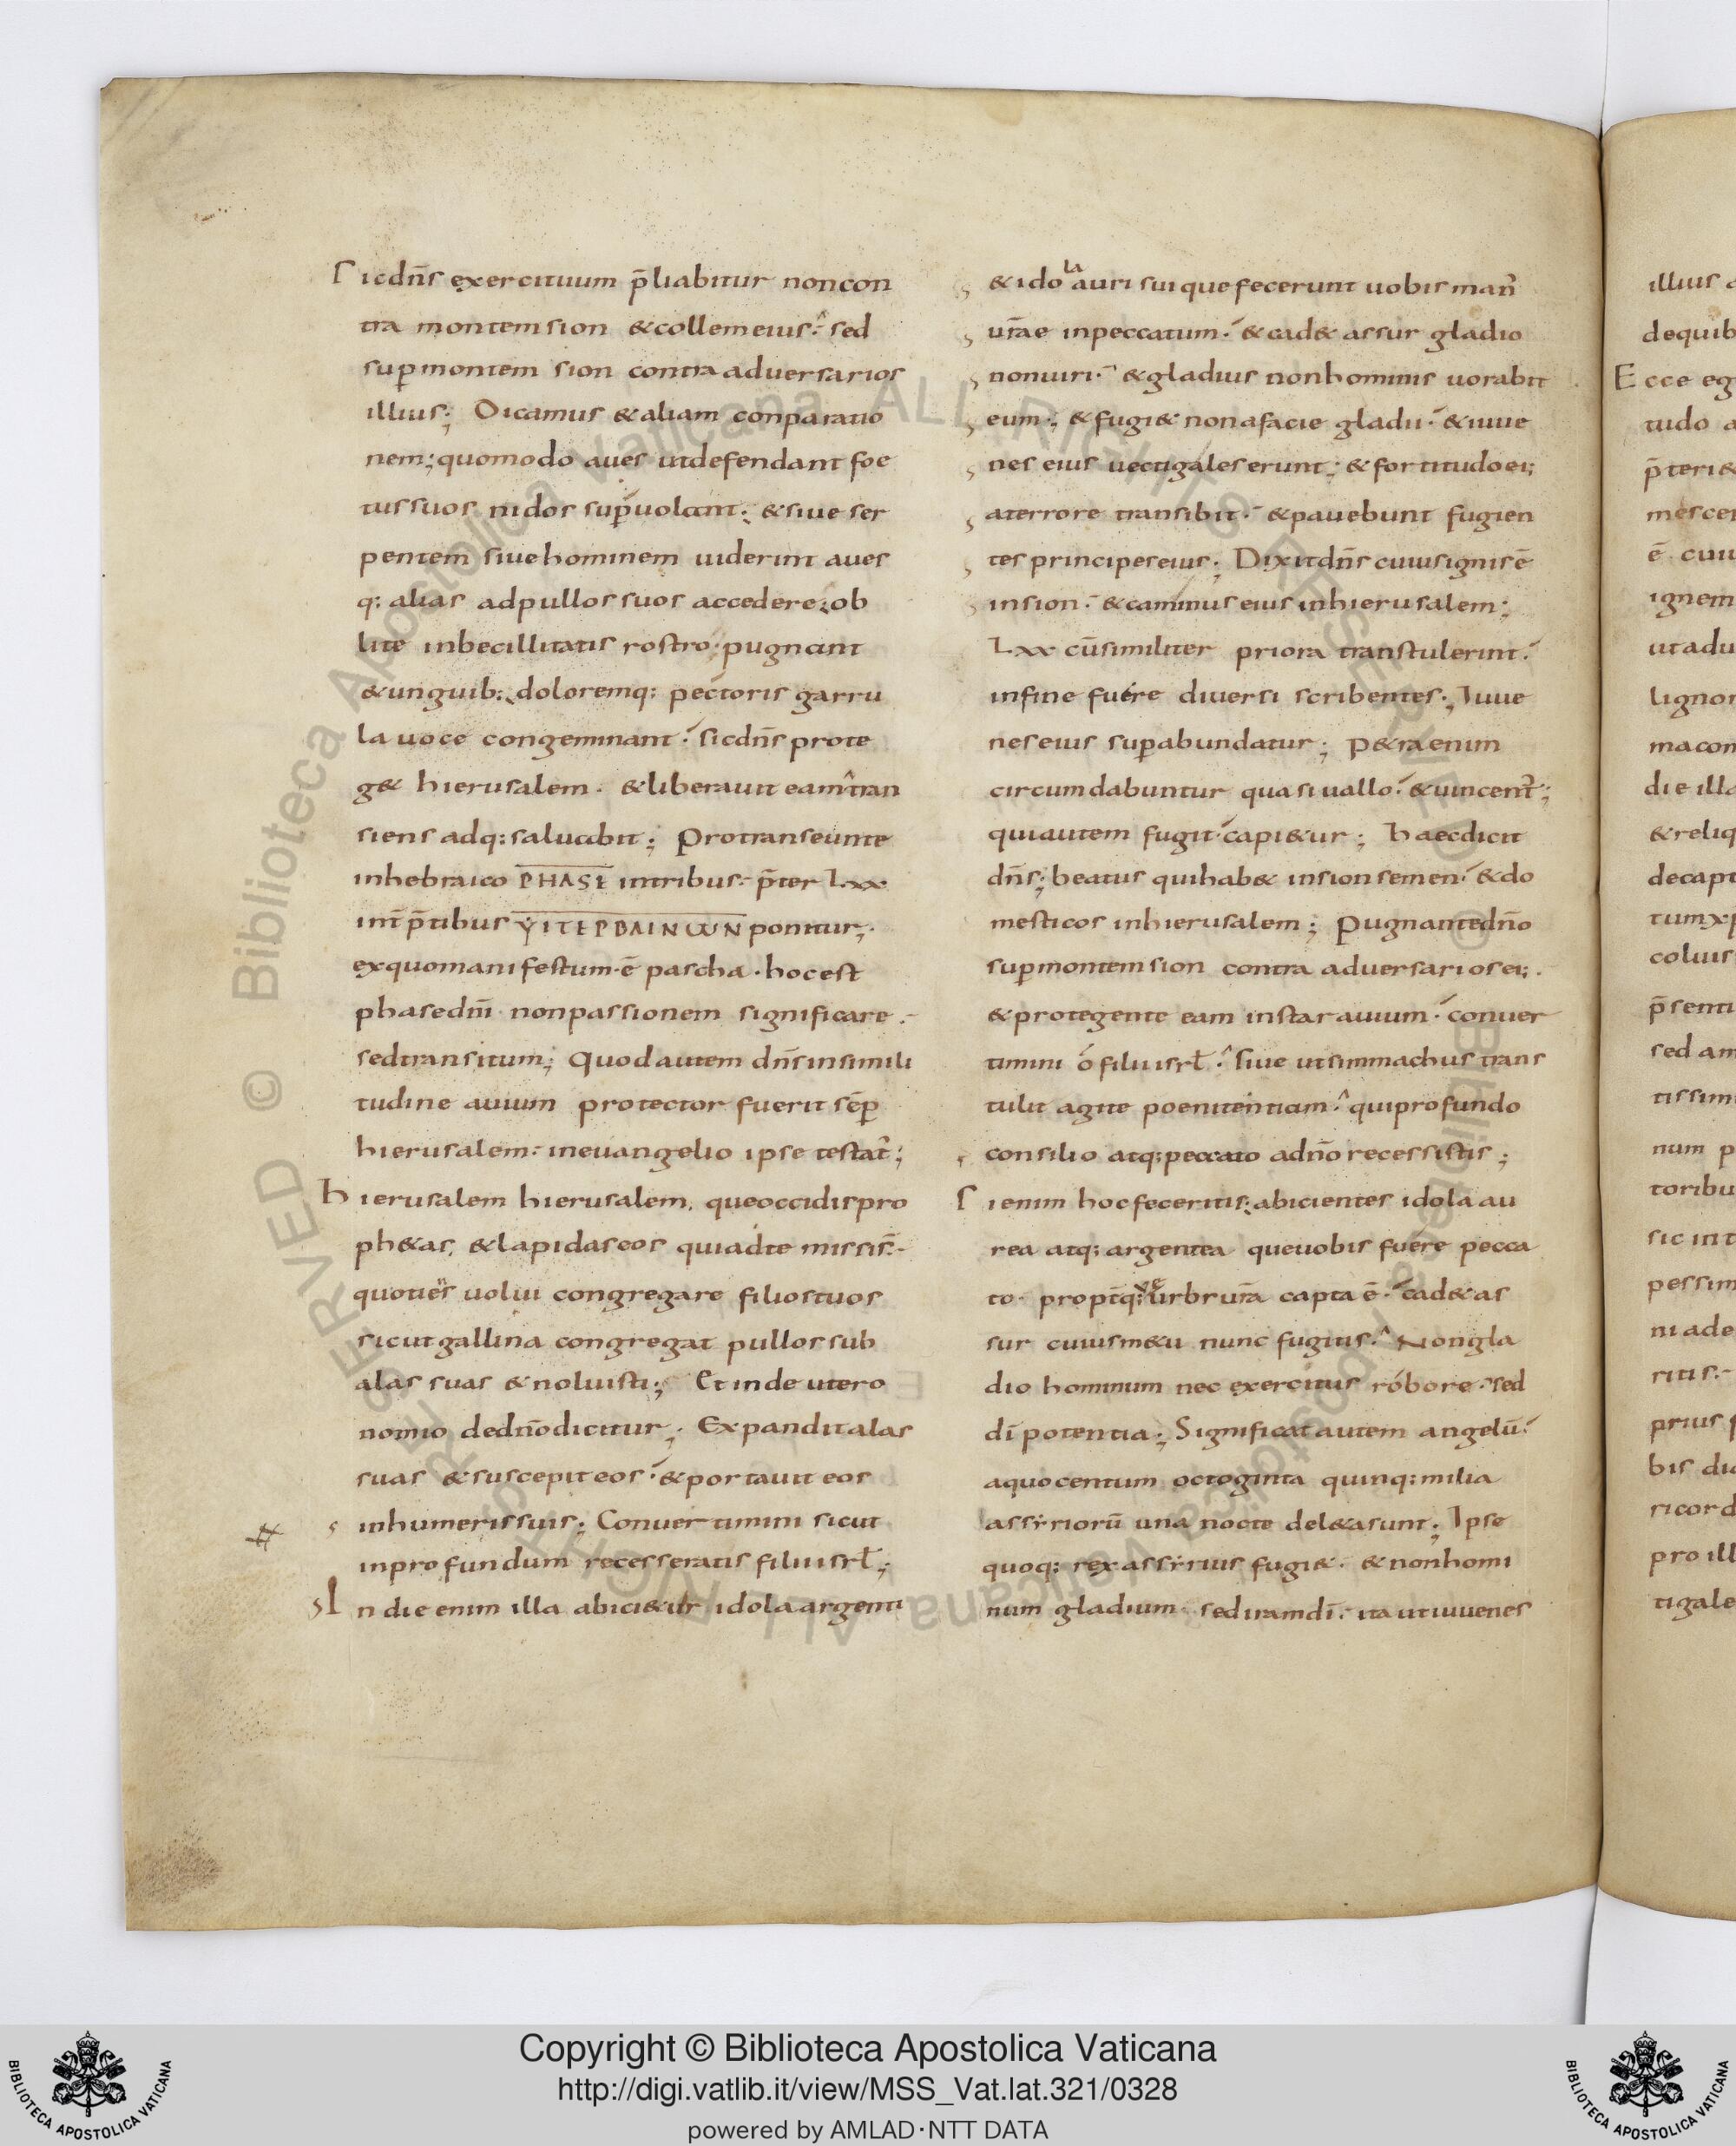 Sic dn̄s exercituum p̄liabitur non con
tra montem sion & collem eius. sed
sup montem sion contra adversarios
illius; Dicamus & aliam conparatio
nem; quomodo aves ut defendant foe
tus suos nidos sup volant; & sive ser
pentem sive hominem viderint aves
q; alias ad pullos suos accedere; ob
lite inbecillitatis rostro pugnant
& unguib; doloremq; pectoris garru
la voce congeminant. sic dn̄s prote
g& hierusalem. & liberavit eam tran
siens adq; salvabit; Pro transeunte
in hebraico PHASE in tribus. p̄ter Lxx
int̄p̄tibus ϒΠΕΡΒΑΙΝωΝ ponitur;
ex quo manifestum ē pascha. hoc est
phase dn̄i non passionem significare.
sed transitum; Quod autem dn̄s in simili
tudine avium protector fuerit sēp
hierusalem. in evangelio ipse testat̄;
Hierusalem hierusalem, que occidis pro
ph&as, & lapidas eos qui ad te missi s̄.
quotiens volui congregare filios tuos
sicut gallina congregat pullos sub
alas suas & noluisti; Et in deutero
nomio de dn̄o dicitur; Expandit alas
suas & suscepit eos. & portavit eos
in humeris suis; Convertimini sicut
in profundum recesseratis filii isrl̄;
In die enim illa abici&ur idola argenti
& idola auri sui que fecerunt vobis man̄
ur̄ae in peccatum. & cad& assur gladio
non viri. & gladius non hominis vorabit
eum; & fugi& non a facie gladii. & iuve
nes eius vectigales erunt; & fortitudo ei;
a terrore transibit. & pavebunt fugien
tes principes eius; Dixit dn̄s cuius ignis ē
in sion. & caminus eius in hierusalem;
Lxx cū similiter priora transtulerint.
in fine fuere diversi scribentes; Iuve
nes eius supabundatur; P&ra enim
circumdabuntur quasi vallo. & vincent̄;
qui autem fugit capi&ur; Haec dicit
dn̄s; beatus qui hab& in sion semen. & do
mesticos in hierusalem; Pugnante dn̄o
sup montem sion contra adversarios ei;.
& protegente eam instar avium. conver
timini o filii isrl̄. sive ut simmachus trans
tulit agite poenitentiam. qui profundo
consilio atq; peccato a dn̄o recessistis;
Si enim hoc feceritis; abicientes idola au
rea atq; argentea que vobis fuere pecca
to. propt̄ q; ve urbs ur̄a capta ē. cad& as
sur cuius m&u nunc fugitis. Non gla
dio hominum nec exercitus robore. sed
dī potentia; Significat autem angelū.
a quo centum octoginta quinq; milia
assyriorū una nocte del&a sunt; Ipse
quoq; rex assyrius fugi&. & non homi
num gladium. sed iram dī. ita ut iuvenes
Copyright © Biblioteca Apostolica Vaticana
http://digi.vatlib.it/view/MSS_Vat.lat.321/0328
powered by AMLAD·NTT DATA
BIBLIOTECA APOSTOLICA VATICANA
BIBLIOTECA APOSTOLICA VATICANA